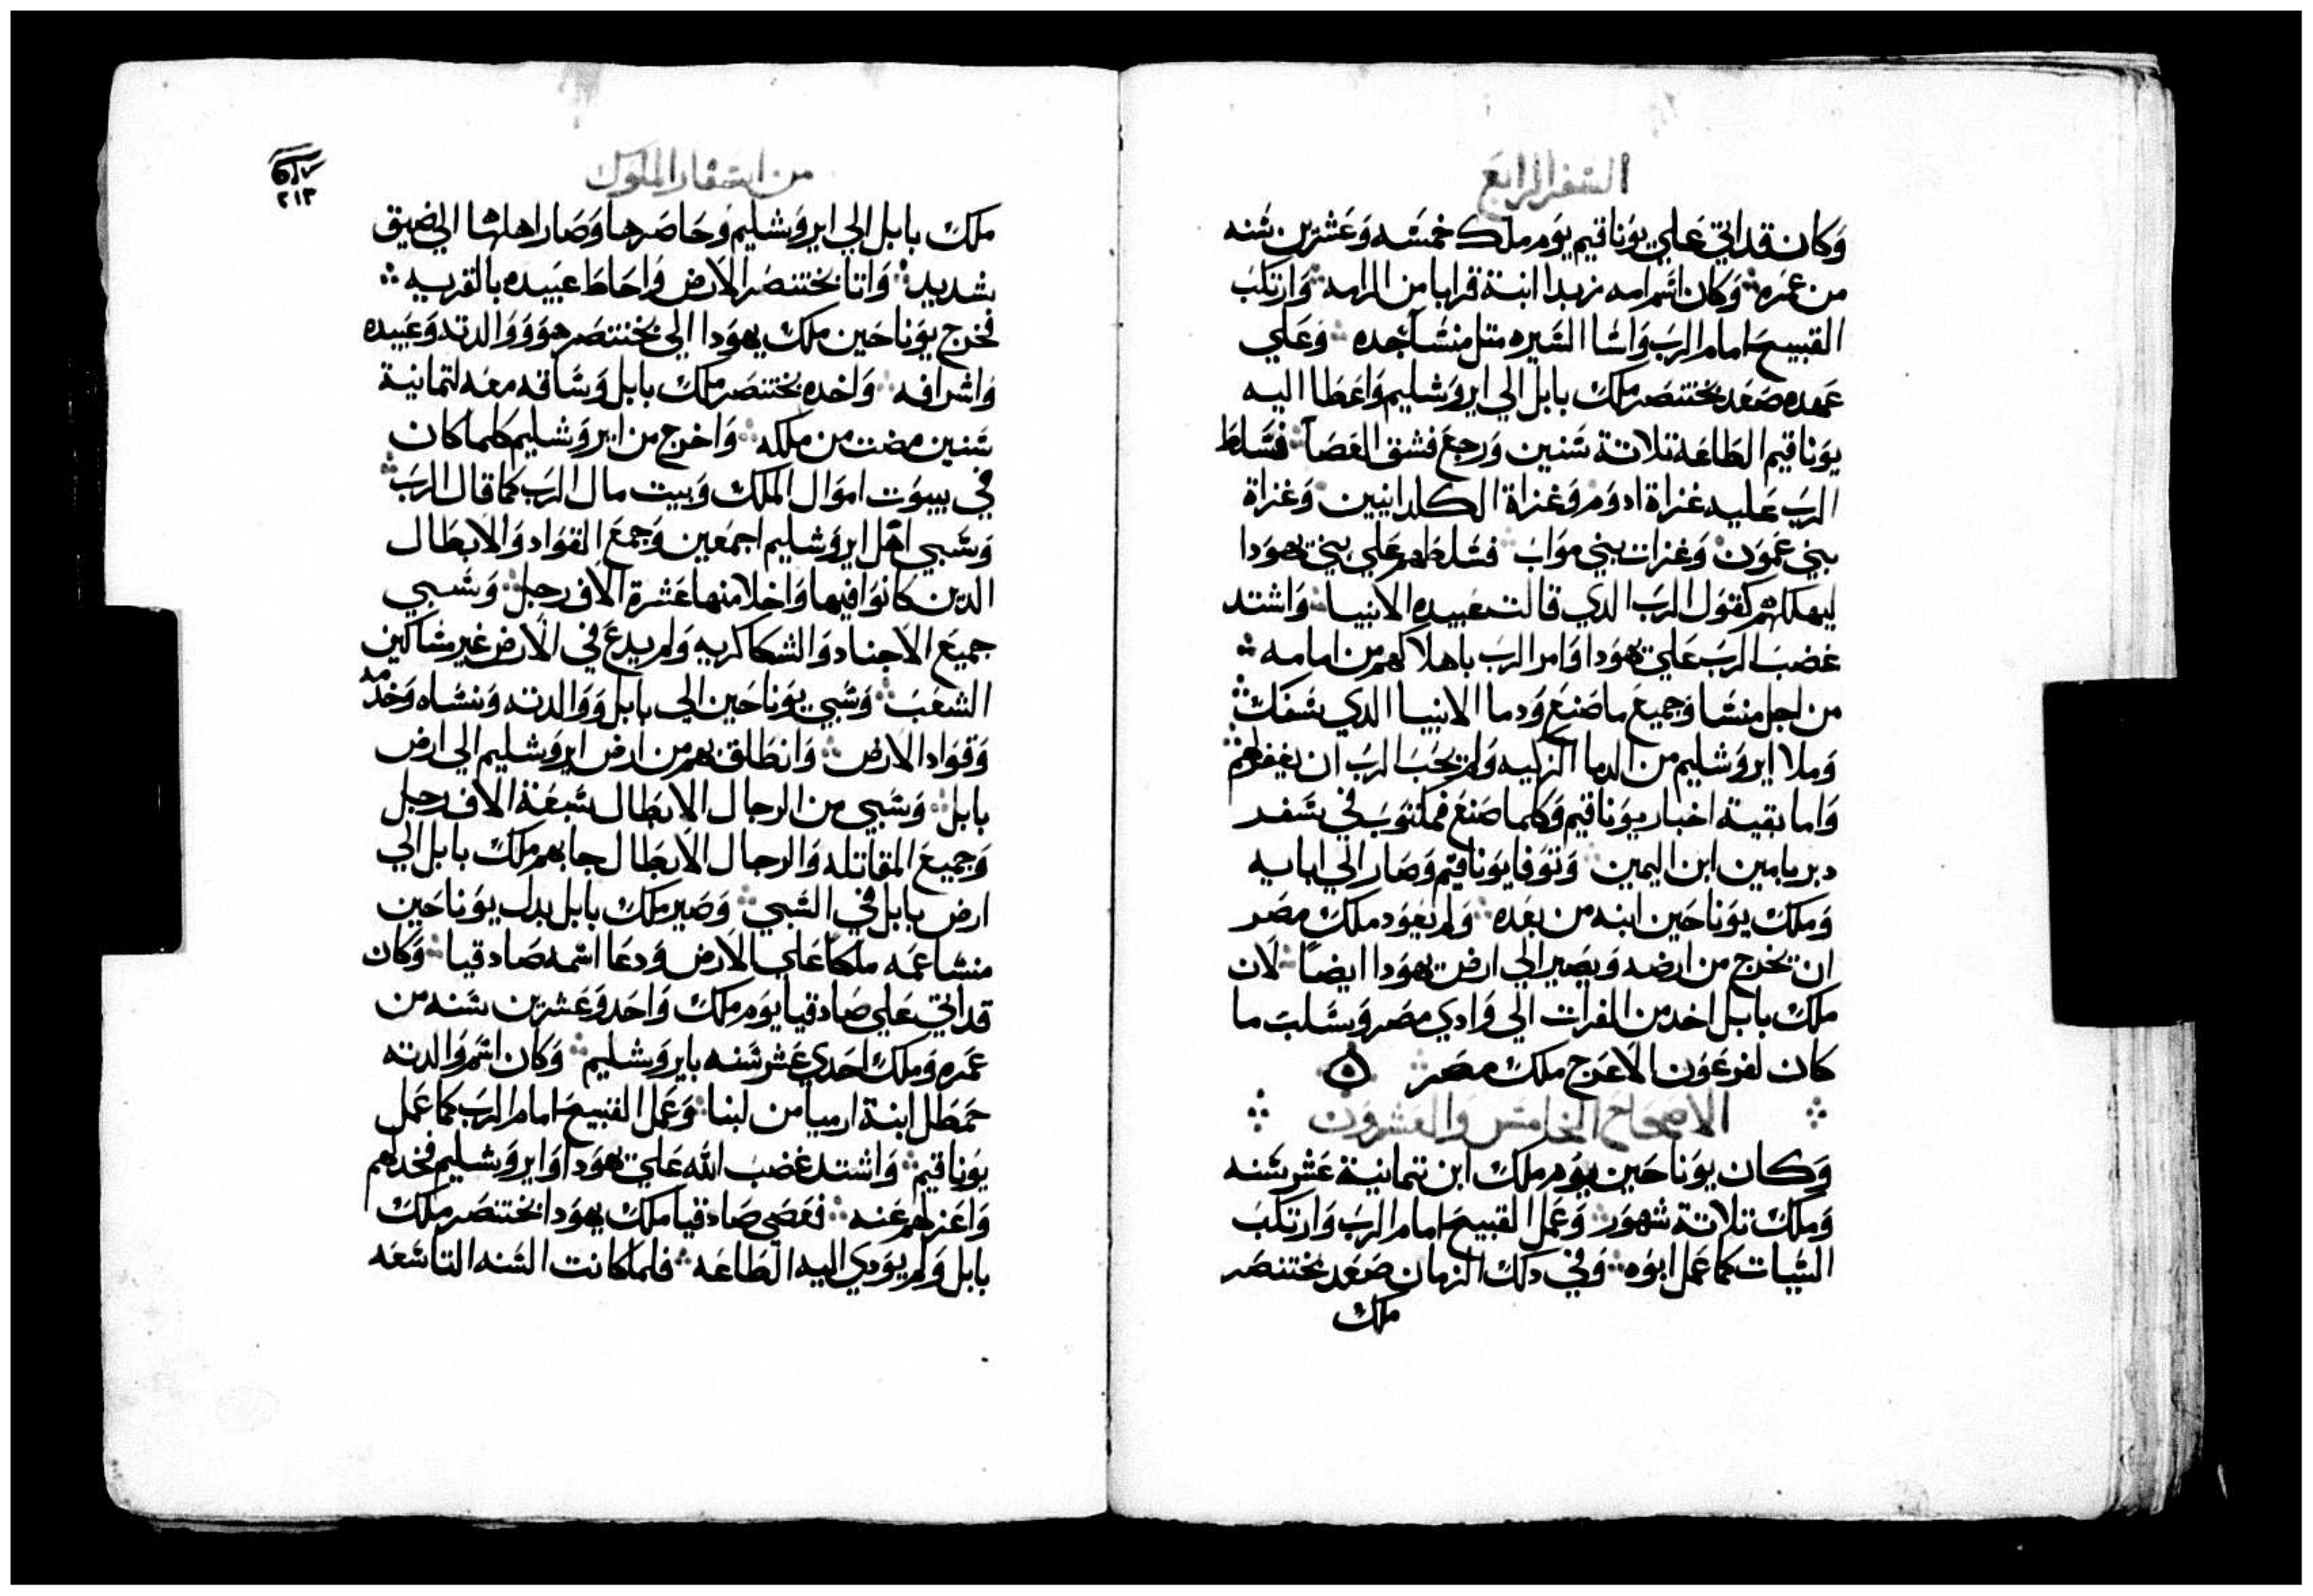 السفر الرابع
وكان قد اتي علي يوناقيم يوم ملك خمسه وعشرين سنه
من عمره وكان اسم امه زبدا ابنة قرابا من الرامه وارتكب
القبيح امام الرب واسا السيره متل منسا جده وعلي
عهده صعد بختنصر ملك بابل الي ايروشليم واعطا اليه
يوناقيم الطاعة تلاتة سنين ورجع فشق العصا فسلط
الرب عليه غزاة ادوم وغزاة الكلدانيين وغزاة
بني عمون وغزات بني مواب فسلطهم علي بني يهودا
ليهلكهم كقول الرب الدي قالت عبيده الانبيا واشتد
غضب الرب علي يهودا وامر الرب باهلاكهم من امامه
من اجل منسا وجميع ما صنع ودما الانبيا الدي سفك
وملا ايروشليم من الدما الزكيه ولم يحب الرب ان يغفر لهم
واما بقية اخبار يوناقيم وكلما صنع فمكتوب في سفر
دبريامين ابن اليمين وتوفا يوناقيم وصار الي ابايه
وملك يوناحين ابنه من بعده ولم يعود ملك مصر
ان يخرج من ارضه ويصير الي ارض يهودا ايضاً لان
ملك بابل اخد من الفرات الي وادي مصر وسلب ما
كان لفرعون الاعرج ملك مصر
الاصحاح الخامس والعشرون
وكان يوناحين يوم ملك ابن تمانية عشر سنه
وملك تلاتة شهور وعمل القبيح امام الرب وارتكب
السيات كما عمل ابوه وفي دلك الزمان صعد بختنصر
ملك
من اسفار الملوك
٢١٣
ملك بابل الي ايروشليم وحاصرها وصار اهلها الي ضيق
شديد واتا بختنصر الارض واحاط عبيده بالقريه
فخرج يوناحين ملك يهودا الي بختنصر هو ووالدته وعبيده
واشرافه واخده بختنصر ملك بابل وساقه معه لتمانية
سنين مضت من ملكه واخرج من ايروشليم كلما كان
في بيوت اموال الملك وبيت مال الرب كما قال الرب
وسبي اهل ايروشليم اجمعين وجمع القواد والابطال
الدين كانوا فيها واخلا منها عشرة الاف رجل وسبي
جميع الاجناد والشكاكريه ولم يدع في الارض غير مساكين
الشعب وسبي يوناحين الي بابل ووالدته ونساه وخدمه
وقواد الارض وانطلق بهم من ارض ايروشليم الي ارض
بابل وسبي من الرجال الابطال سبعة الاف رجل
وجميع المقاتله والرجال الابطال جا بهم ملك بابل الي
ارض بابل في السبي وصير ملك بابل بدل يوناحين
منسا عمه ملكا علي الارض ودعا اسمه صادقيا وكان
قد اتي علي صادقيا يوم ملك واحد وعشرين سنه من
عمره وملك احدي عشر سنه بايروشليم وكان اسم والدته
حمطل ابنة ارميا من لبنا وعمل القبيح امام الرب كما عمل
يوناقيم واشتد غضب الله علي يهودا وايروشليم فخدلهم
واعزلهم عنه فعصي صادقيا ملك يهودا بختنصر ملك
بابل ولم يودي اليه الطاعه فلما كانت السنه التاسعه